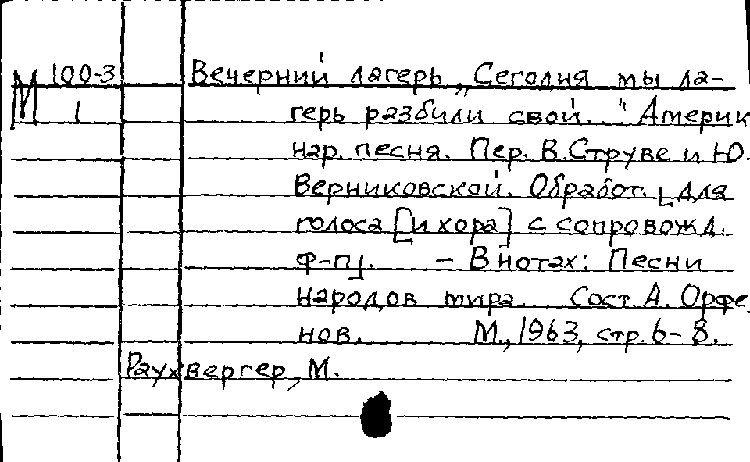 М 100-3
1
Вечерний лагерь „Сегодня мы ла-
герь разбили свой..." Америк
нар. песня. Пер. В. Струве и Ю.
Верниковской. Обработ. [для
голоса [и хора] с сопровожд.
ф-п]. - В нотах: Песни
народов мира. Сост. А. Орфе
нов. М., 1963, стр. 6-8.
Раухвергер, М.